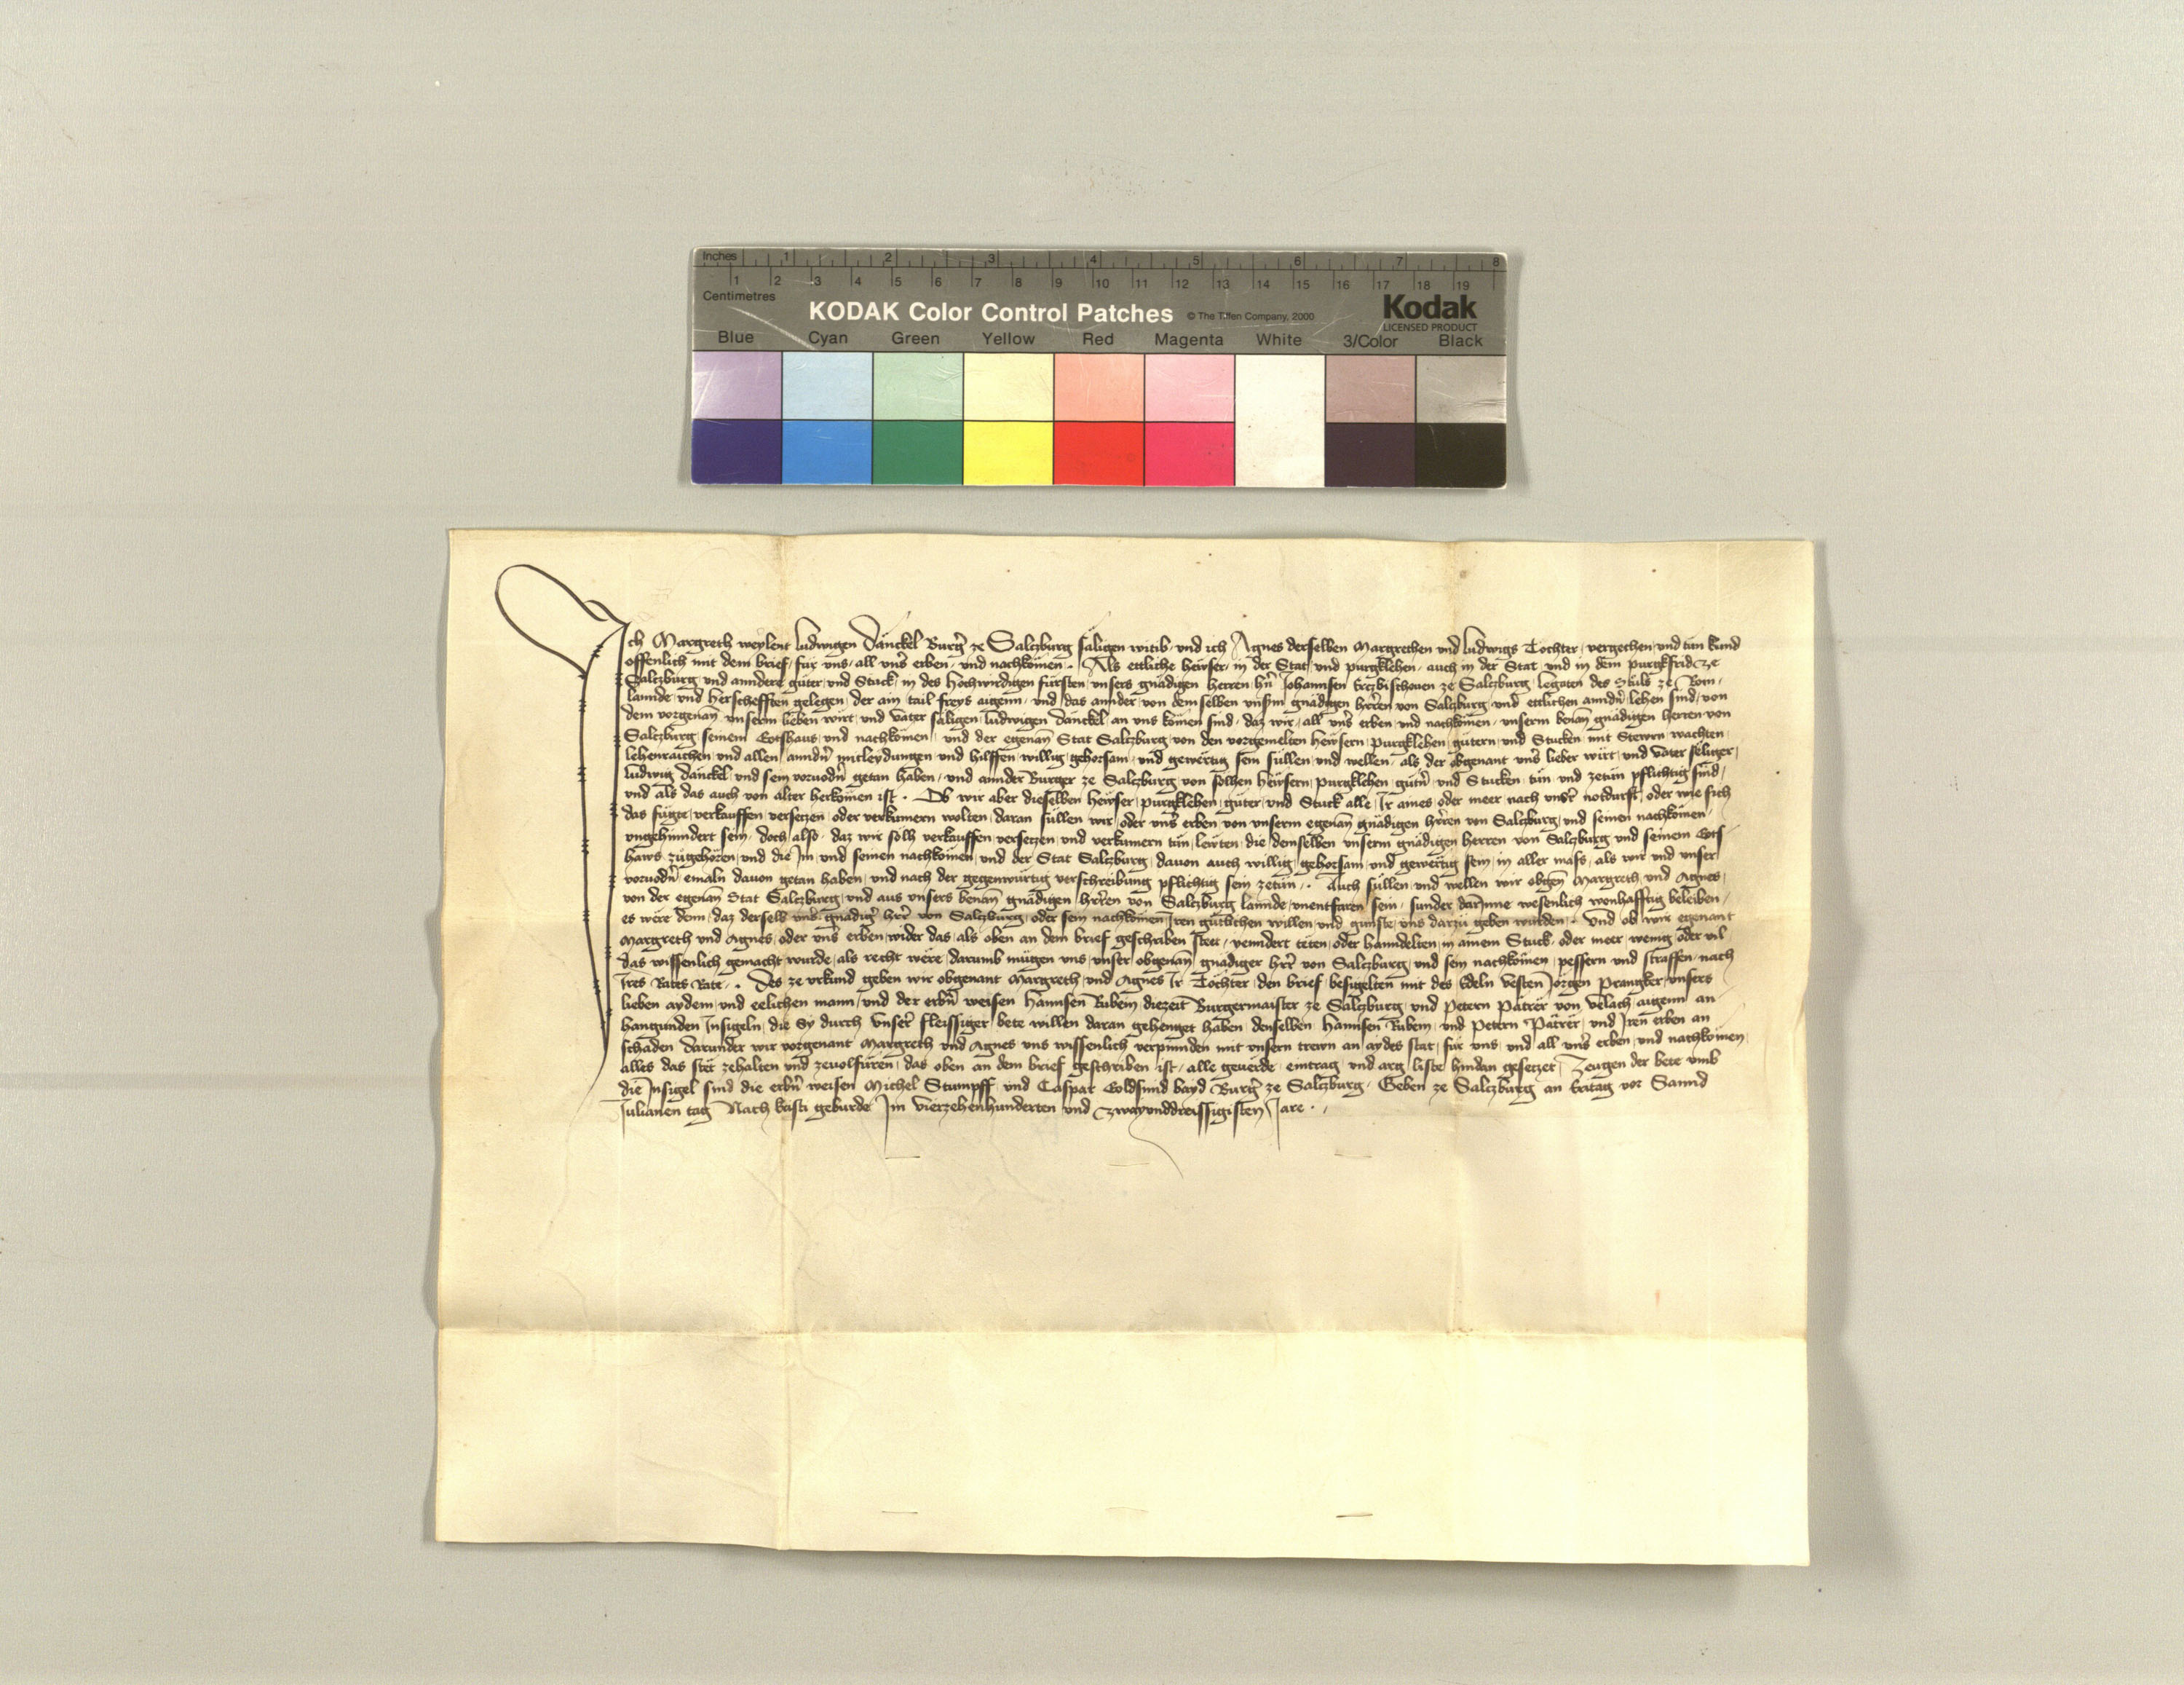 Inches 1 2 3 4 5 6 7 8
1 2 3 4 5 6 7 8 9 10 11 12 13 14 15 16 17 18 19
Centimetres
KODAK Color Control Patches © The Tiffen Company, 2000 Kodak
LICENSED PRODUCT
Blue Cyan Green Yellow Red Magenta White 3/Color Black
Ich Margreth weylent Ludwigen Dänckel Burg̃ ze Salczburg säligen witib und ich Agnes derselben Margrethen und Ludwigs Tochter, vergechen und tun kund
offenlich mit dem brief, für uns, all uns̃ erben und nachkömen. Als ettliche hewser in der Stat und purgklehen, auch in der Stat und in dem purgkfrid ze
Salczburg und anndere güter und Stuck in des hochwirdigen fürsten unsers gnädigen herren hñ Johannsen Erczbischouen ze Salczburg legaten des Stuls ze Rom,
lannde und herschefften gelegen, der ain tail freys aigenn, und das annder von demselben unsm̃ gnädigen hr̃ren von Salczburg und ettlichen anndñ lehen sind, von
dem vorgenan̄ unserm lieben wirt und vater säligen Ludwigen Dänckel an uns komen sind, daz wir, all uns̃ erben und nachkömen, unserm benan̄ gnädigen herren von
Salczburg, seinem Gotshaus und nachkömen, und der egenan̄ Stat Salczburg von den vorgemelten hewsern, purgklehen, gütern und Stucken, mit Stewrn wachten
lehenraichen und allen anndñ mitleydungen und hilffen, willig gehorsam und gewertig sein süllen und wellen, als der obgenant uns̃ lieber wirt und vater säliger,
Ludwig Dänckel und sein voruodñ getan haben, und annder Burger ze Salczburg von solhen hewsern, purgklehen, gütñ und Stucken, tun und zetun pflichtig sind,
und als das auch von alter herkömen ist. Ob wir aber dieselben hewser, purgklehen, güter und Stuck alle, Ir ains oder meer nach unsr̃ notdurft, oder wie sich
das fügte, verkauffen versetzen oder verkumern wolten, daran süllen wir oder uns̃ erben von unserm egenan̄ gnädigen hr̃ren von Salczburg und seinen nachkömen,
ungehinndert sein, doch also, daz wir solh verkauffen versetzen und verkumern tun, lewten, die demselben unserm gnädigen herren von Salczburg und seinem Gots
haws zugehören, und die Im und seinen nachkömen, und der Stat Salczburg, dauon auch willig gehorsam und gewertig sein, in aller mass, als wir und unser
voruodñ emaln dauon getan haben, und nach der gegenwürtig verschreibung pflichtig sein zetun. Auch süllen und wellen wir obgen̄ Margreth und Agnes,
von der egenan̄ Stat Salczburg, und aus unsers benan̄ gnädigen hr̃ren von Salczburg lannde unentfaren sein, sunder darInne wesenlich wonhafftig beleiben,
es were denn, daz derselb uns̃ gnädig̃ hr̃r von Salczburg, oder sein nachkömen Iren gütlichen willen und gunste uns darzu geben wurden. Und ob wir egenant
Margreth und Agnes, oder uns̃ erben, wider das, als oben an dem brief geschriben stett, yenndert teten, oder hanndelten, in ainem Stuck, oder meer, wenig oder vil,
das wissenlich gemacht wurde, als recht were, darumb mügen uns, unser obgenan̄ gnädiger hr̃r von Salczburg, und sein nachkömen, pessern und straffen, nach
Ires Rates Rate. Des ze urkund geben wir obgenant Margreth und Agnes Ir Tochter, den brief, besigelten mit des Edeln Vesten Jörgen Prangker, unsers
lieben aydem und eelichen mann, und der erbñ weisen Hannsen Rubein diezeit Burgermaister ze Salczburg, und Petern Pätrer von Velach aigenn an
hangunden Insigeln, die Sy durch unsr̃ fleissiger bete willen daran gehenget haben, denselben Hannsen Rubein, und Petern Pätrer, und Iren erben an
schaden, darunder wir vorgenant Margreth und Agnes uns wissenlich verpinnden mit unsern trewn an aydes stat, für uns, und all uns̃ erben, und nachkömen,
alles das stet zehalten und zeuolfüren, das oben an dem brief geschriben ist, alle geuerde, eintrag, und arg liste hindan gesetzet, Zeugen der bete umb
die Insigel sind die erbñ weisen Michel Stumpff und Caspar Goldsmid bayd Burg̃ ze Salczburg, Geben ze Salczburg an Eritag vor Sannd
Julianen tag Nach kristi geburde Im Vierzehenhunderten und Zwayunddreissigisten Jare.